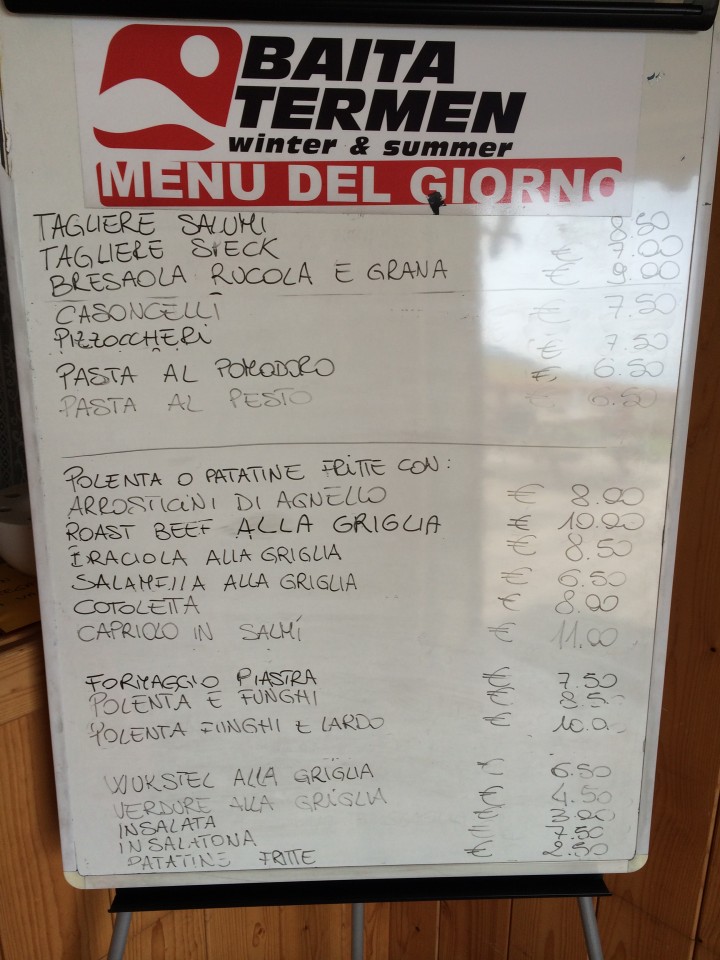 BAITA
TERMEN
winter & summer
MENU DEL GIORNO
TAGLIERE SALUMI € 8.50
TAGLIERE SPECK € 7.00
BRESAOLA RUCOLA E GRANA € 9.00
CASONCELLI € 7.50
PIZZOCCHERI € 7.50
PASTA AL POMODORO € 6.50
PASTA AL PESTO € 6.50
POLENTA O PATATINE FRITTE CON:
ARROSTICINI DI AGNELLO € 8.00
ROAST BEEF ALLA GRIGLIA € 10.00
BRACIOLA ALLA GRIGLIA € 8.50
SALAMELLA ALLA GRIGLIA € 6.50
COTOLETTA € 8.00
CAPRIOLO IN SALMÍ € 11.00
FORMAGGIO PIASTRA € 7.50
POLENTA E FUNGHI € 8.50
POLENTA FUNGHI E LARDO € 10.0
WUKSTEL ALLA GRIGLIA € 6.50
VERDURE ALLA GRIGLIA € 4.50
INSALATA € 3.00
INSALATONA € 7.50
PATATINE FRITTE € 2.50